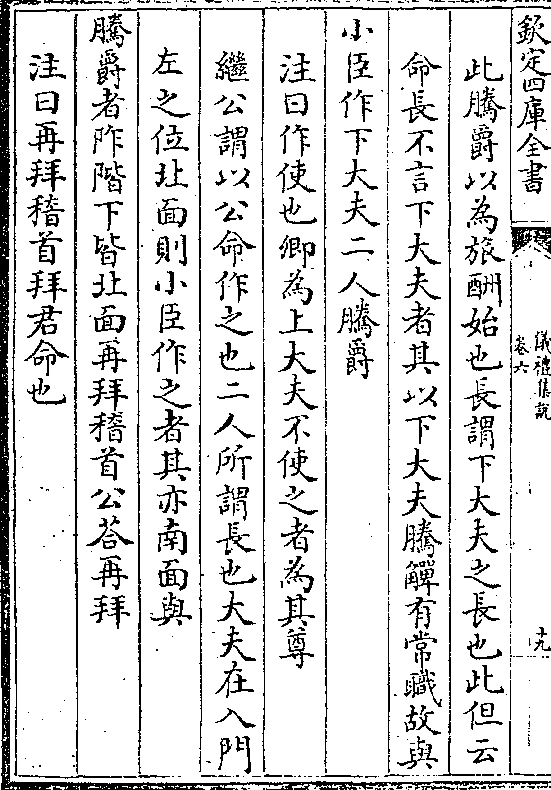 欽定四庫全書
儀禮集說
卷六
十九
此騰爵以為旅酬始也長謂下大夫之長也此但云
命長不言下大夫者其以下大夫騰觶有常職故與
小臣作下大夫二人騰爵
注曰作使也卿為上大夫不使之者為其尊
繼公謂以公命作之也二人所謂長也大夫在入門
左之位北面則小臣作之者其亦南面與
騰爵者阼階下皆北面再拜稽首公荅再拜
注曰再拜稽首拜君命也